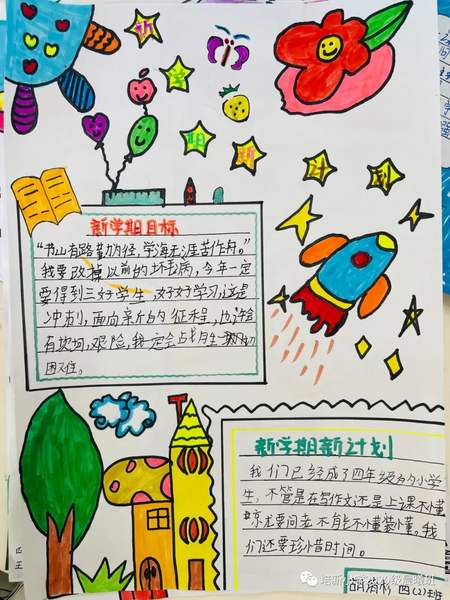 新学期新计划
新学期目标
"书山有路勤为径,学海无涯苦作舟。"
我要改掉以前的坏毛病,今年一定
要得到三好学生,好好学习,这是
冲刺,面向新的征程,也许会
有坎坷,艰险,我一定会战胜
困难。
新学期新计划
我们已经成了四年级的小学
生,不管是在写作文还是上课不懂
就要问老不能不懂装懂。我
们还要珍惜时间。
四(2)班